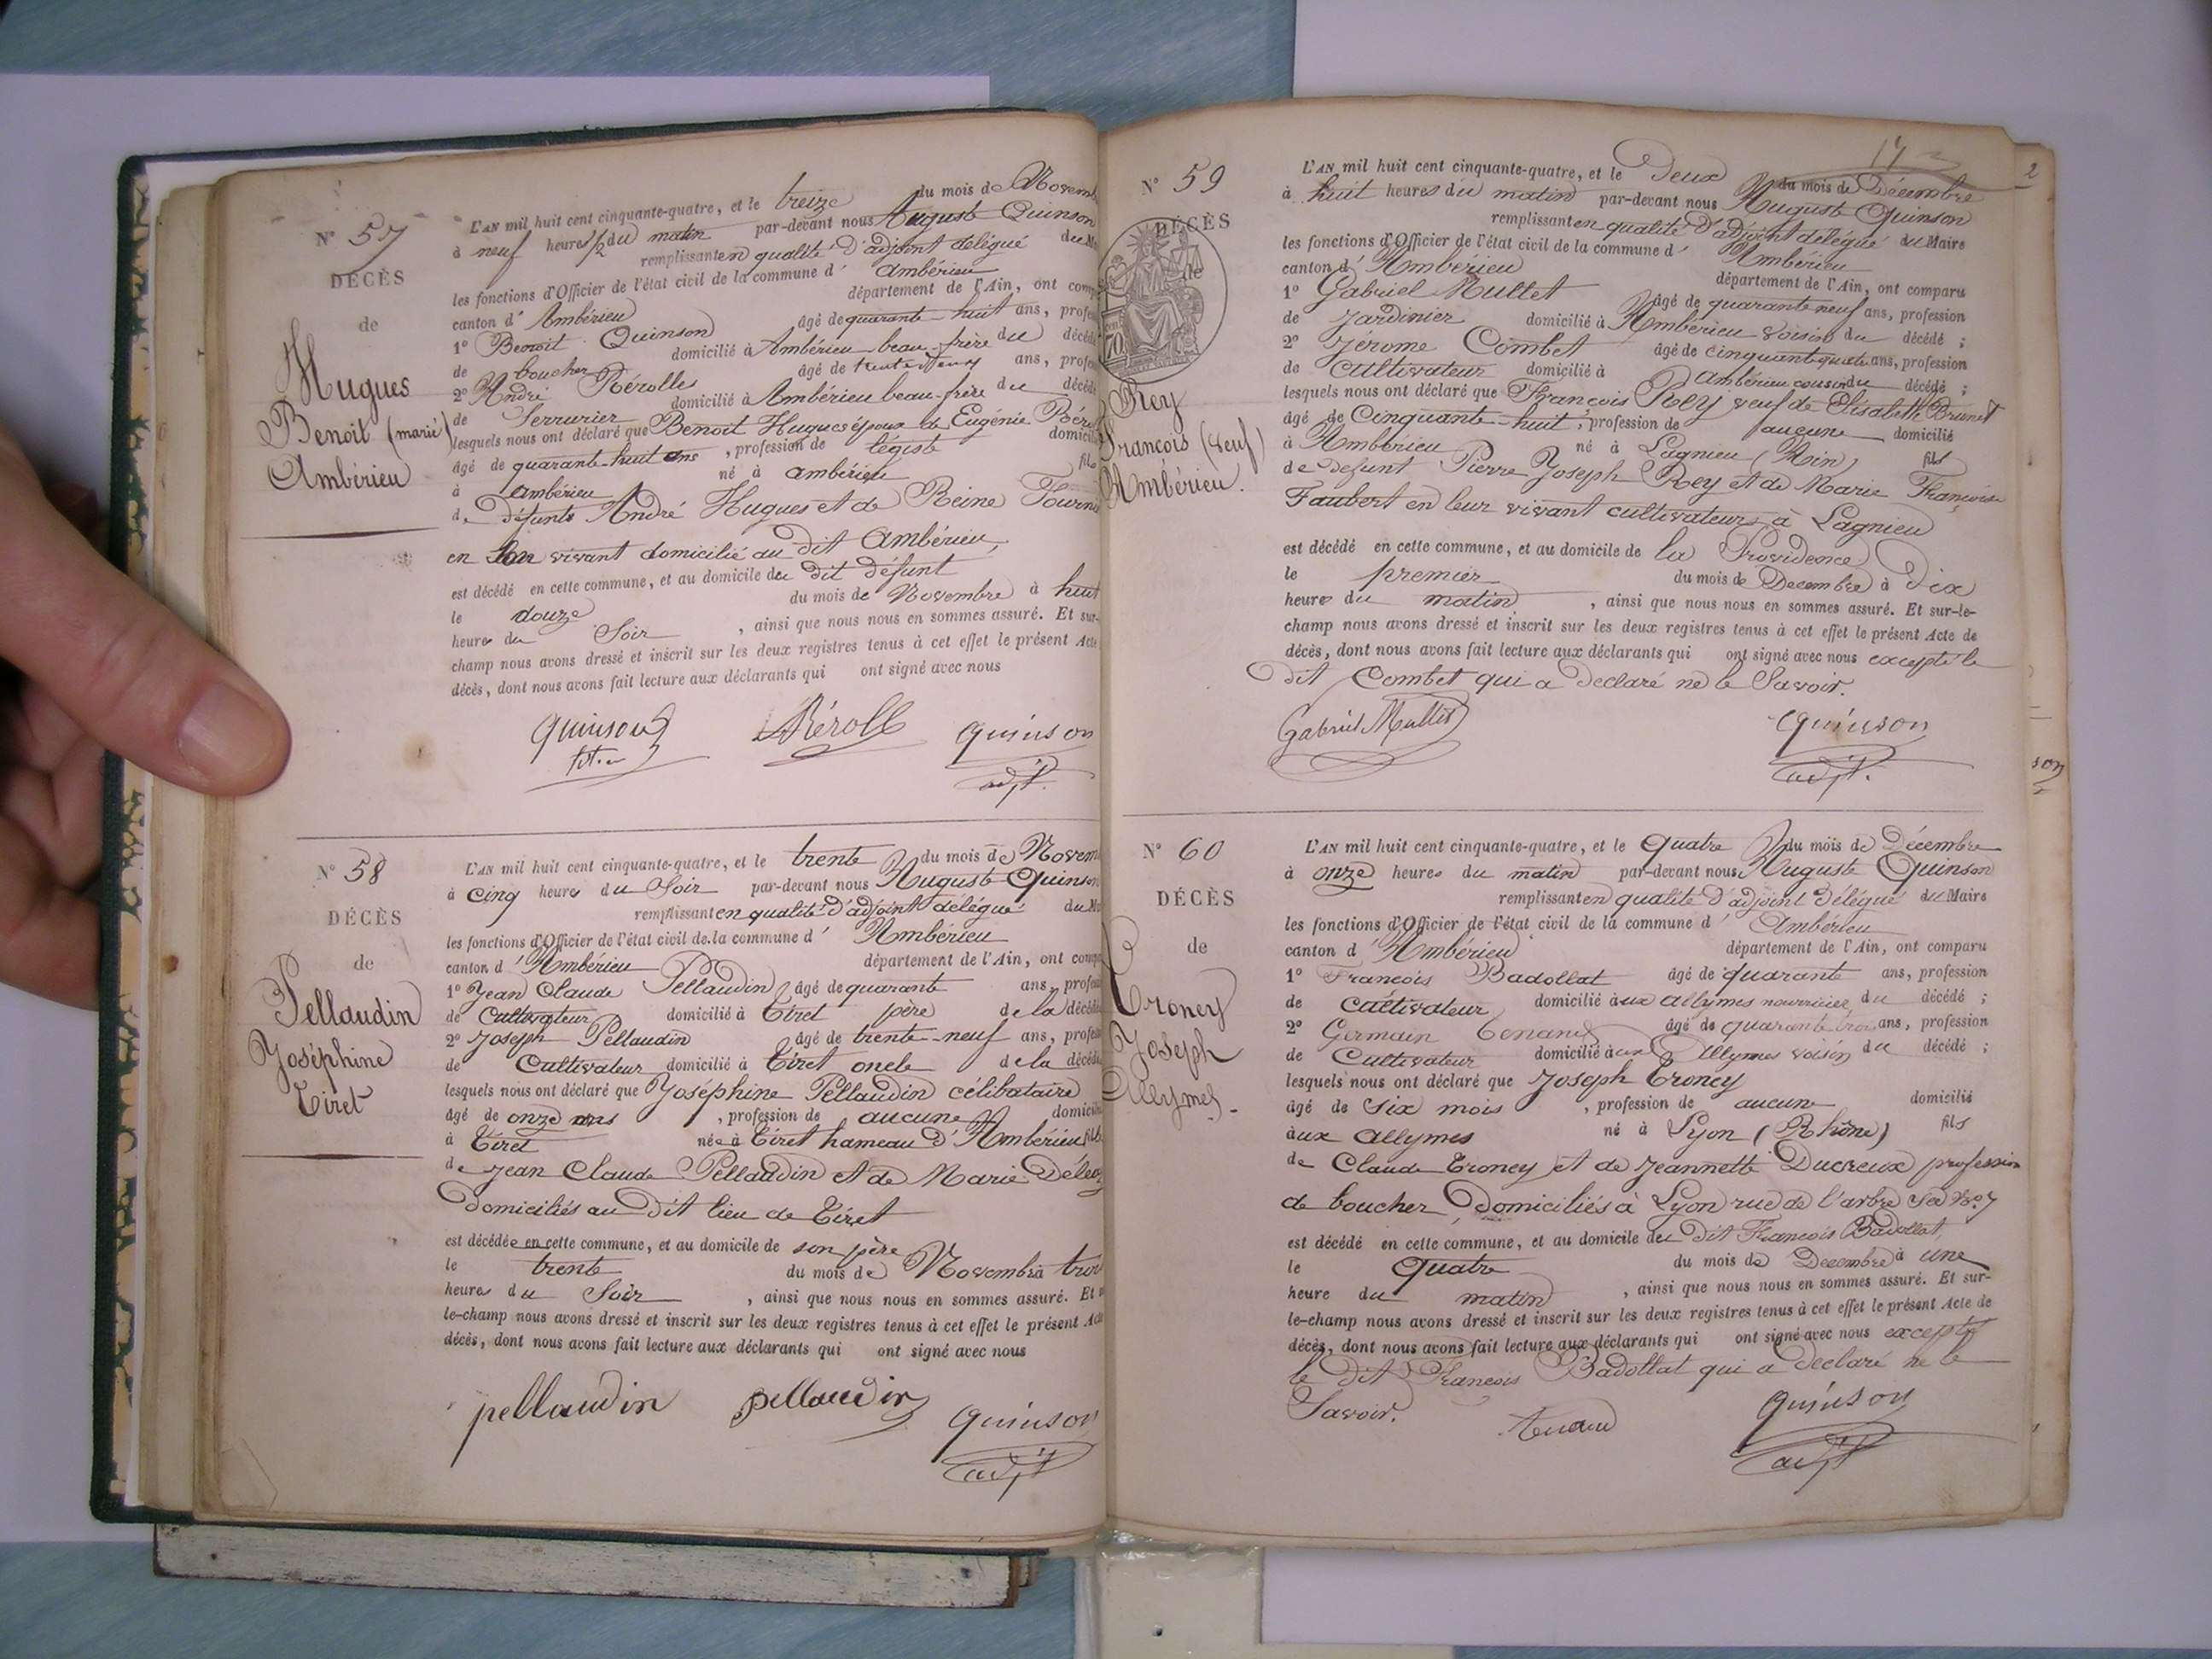 N° 57
DÉCÈS
de
Hugues
Benoit (marié)
Ambérieu
L'AN mil huit cent cinquante-quatre, et le treize du mois de Novemb
à neuf heures ½ du matin par-devant nous Auguste Quinson
remplissant en qualité d'adjoint délégué du Ma
les fonctions d'Officier de l'état civil de la commune d' Ambérieu
canton d' Ambérieu département de l'Ain, ont comp
1° Benoit Quinson âgé de quarante-huit ans, profes
de boucher domicilié à Ambérieu beau-frère du décédé
2° André Pérolles âgé de ans, profes
de Serrurier domicilié à Ambérieu beau-frère du décédé
lesquels nous ont déclaré que Benoit Hugues époux de Eugénie Pérol
âgé de quarante-huit ans, profession de légiste domicilié
à Ambérieu né à Ambérieu fils
de défunts André Hugues et de Reine Fourni
en vivant domicilié au dit Ambérieu,
est décédé en cette commune, et au domicile du dit défunt
le douze du mois de Novembre à huit
heures du Soir, ainsi que nous nous en sommes assuré. Et sur-
champ nous avons dressé et inscrit sur les deux registres tenus à cet effet le présent Acte
décès, dont nous avons fait lecture aux déclarants qui ont signé avec nous
quinson Pérolle quinson
adjt.
N° 58
DÉCÈS
de
Pellaudin
Joséphine
Tiret
L'AN mil huit cent cinquante-quatre, et le trente du mois de Novem
à cinq heures du Soir par-devant nous Auguste Quinson
remplissant en qualité d'adjoint délégué du Ma
les fonctions d'Officier de l'état civil de la commune d' Ambérieu
canton d' Ambérieu département de l'Ain, ont compa
1° Jean Claude Pellaudin âgé de quarante ans, profess
de Cultivateur domicilié à Tiret père de la décédée
2° Joseph Pellaudin âgé de trente-neuf ans, profess
de Cultivateur domicilié à Tiret oncle de la décédé
lesquels nous ont déclaré que Joséphine Pellaudin célibataire
âgé de onze ans, profession de aucune domicilié
à Tiret née à Tiret hameau d'Ambérieu fille
de Jean Claude Pellaudin et de Marie
domiciliés au dit lieu de Tiret
est décédée en cette commune, et au domicile de son père
le trente du mois de Novembre à trois
heures du Soir, ainsi que nous nous en sommes assuré. Et
le-champ nous avons dressé et inscrit sur les deux registres tenus à cet effet le présent Acte
décès, dont nous avons fait lecture aux déclarants qui ont signé avec nous
pellaudin pellaudin quinson
adjt
17
N° 59
DÉCÈS
de
Rey
François (veuf)
Ambérieu.
L'AN mil huit cent cinquante-quatre, et le Deux du mois de Décembre
à huit heures du matin par-devant nous Auguste Quinson
remplissant en qualité d'adjoint délégué du Maire
les fonctions d'Officier de l'état civil de la commune d' Ambérieu
canton d' Ambérieu département de l'Ain, ont comparu
1° Gabriel Mullet âgé de quarante neuf ans, profession
de Jardinier domicilié à Ambérieu voisin du décédé ;
2° Jérome Combet âgé de cinquante quatre ans, profession
de Cultivateur domicilié à Ambérieu cousin du décédé ;
lesquels nous ont déclaré que François Rey veuf de Elisabeth Brunet
âgé de Cinquante-huit, profession de aucune domicilié
à Ambérieu né à Lagnieu (Ain) fils
de défunt Pierre Joseph Rey et de Marie Françoise
Faubert en leur vivant cultivateurs à Lagnieu
est décédé en cette commune, et au domicile de la Providence
le premier du mois de Decembre à Dix
heures du matin, ainsi que nous nous en sommes assuré. Et sur-le-
champ nous avons dressé et inscrit sur les deux registres tenus à cet effet le présent Acte de
décès, dont nous avons fait lecture aux déclarants qui ont signé avec nous excepté le
Dit Combet qui a declaré ne le Savoir.
Gabriel Mullet quinson
adjt.
N° 60
DÉCÈS
de
Troney
Joseph
Allymes.
L'AN mil huit cent cinquante-quatre, et le Quatre du mois de Décembre
à onze heures du matin par-devant nous Auguste Quinson
remplissant en qualité d'adjoint délégué du Maire
les fonctions d'Officier de l'état civil de la commune d' Ambérieu
canton d' Ambérieu département de l'Ain, ont comparu
1° François Badollat âgé de quarante ans, profession
de Cultivateur domicilié aux Allymes nourricier du décédé ;
2° Germain Tenand âgé de quarante trois ans, profession
de Cultivateur domicilié aux Allymes voisin du décédé ;
lesquels nous ont déclaré que Joseph Troney
âgé de Six mois, profession de aucune domicilié
aux Allymes né à Lyon (Rhône) fils
de Claude Troney et de Jeannette Ducreux profession
de boucher, domiciliés à Lyon rue de l'arbre Sec N° 7
est décédé en cette commune, et au domicile du Dit François Badollat,
le Quatre du mois de Decembre à une
heure du matin, ainsi que nous nous en sommes assuré. Et sur-
le-champ nous avons dressé et inscrit sur les deux registres tenus à cet effet le présent Acte de
décès, dont nous avons fait lecture aux déclarants qui ont signé avec nous excepté
le Dit François Badollat qui a declaré ne le
Savoir.
Tenand quinson
adjt